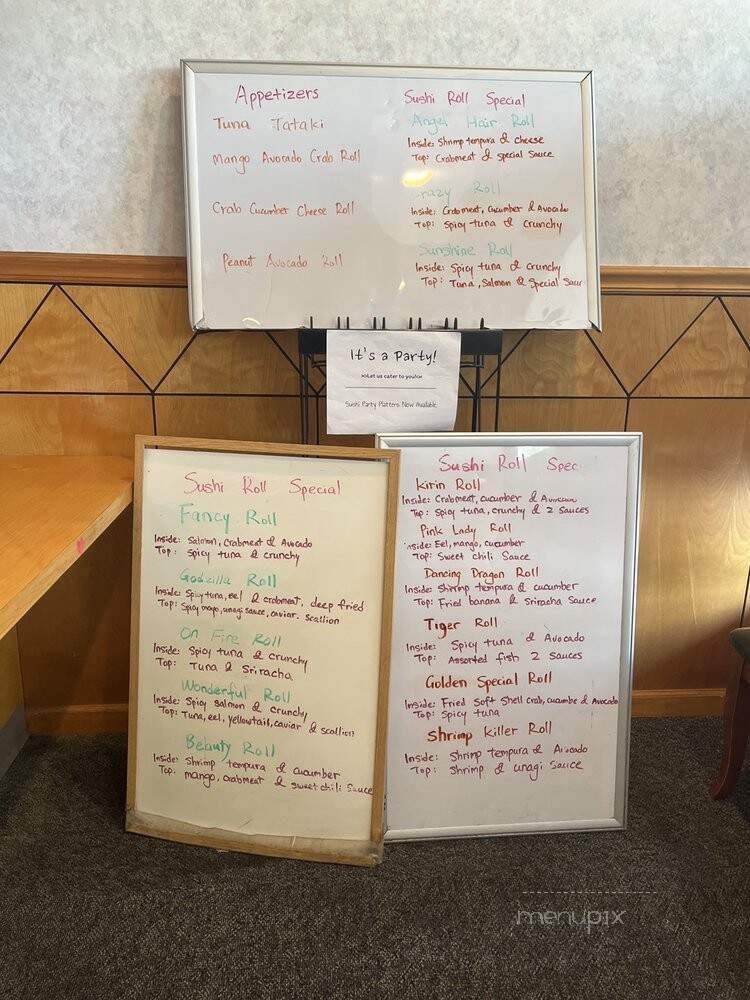 Appetizers
Tuna Tataki
Mango Avocado Crab Roll
Crab Cucumber Cheese Roll
Peanut Avocado Roll
Sushi Roll Special
Angel Hair Roll
Inside: Shrimp tempura & cheese
Top: Crabmeat & special Sauce
razy Roll
Inside: Crabmeat, cucumber & Avocado
Top: Spicy tuna & crunchy
Sunshine Roll
Inside: Spicy tuna & crunchy
Top: Tuna, Salmon & Special Saur
It's a Party!
>>Let us cater to you!<<
Sushi Party Platters Now Available
Sushi Roll Special
Fancy Roll
Inside: Salmon, Crabmeat & Avocado
Top: Spicy tuna & crunchy
Godzilla Roll
Inside: Spicy tuna, eel & crabment, deep fried
Top: Spicy mayo, unagi sauce, caviar, scallion
On Fire Roll
Inside: Spicy tuna & crunchy
Top: Tuna & Sriracha
Wonderful Roll
Inside: Spicy salmon & crunchy
Top: Tuna, eel, yellowtail, caviar & scallion
Beauty Roll
Inside: Shrimp tempura & cucumber
Top: mango, crabmeat & sweet chili sauce
Sushi Roll Spec
Kirin Roll
Inside: Crabmeat, cucumber & Avocado
Top: Spicy tuna, crunchy & 2 sauces
Pink Lady Roll
Inside: Eel, mango, cucumber
Top: Sweet chili Sauce
Dancing Dragon Roll
Inside: Shrimp tempura & cucumber
Top: Fried banana & Sriracha Sauce
Tiger Roll
Inside: Spicy tuna & Avocado
Top: Assorted fish 2 sauces
Golden Special Roll
Inside: Fried Soft Shell crab, cucumbe & Avocado
Top: Spicy tuna
Shrimp Killer Roll
Inside: Shrimp tempura & Avocado
Top: Shrimp & unagi Sauce
menupix